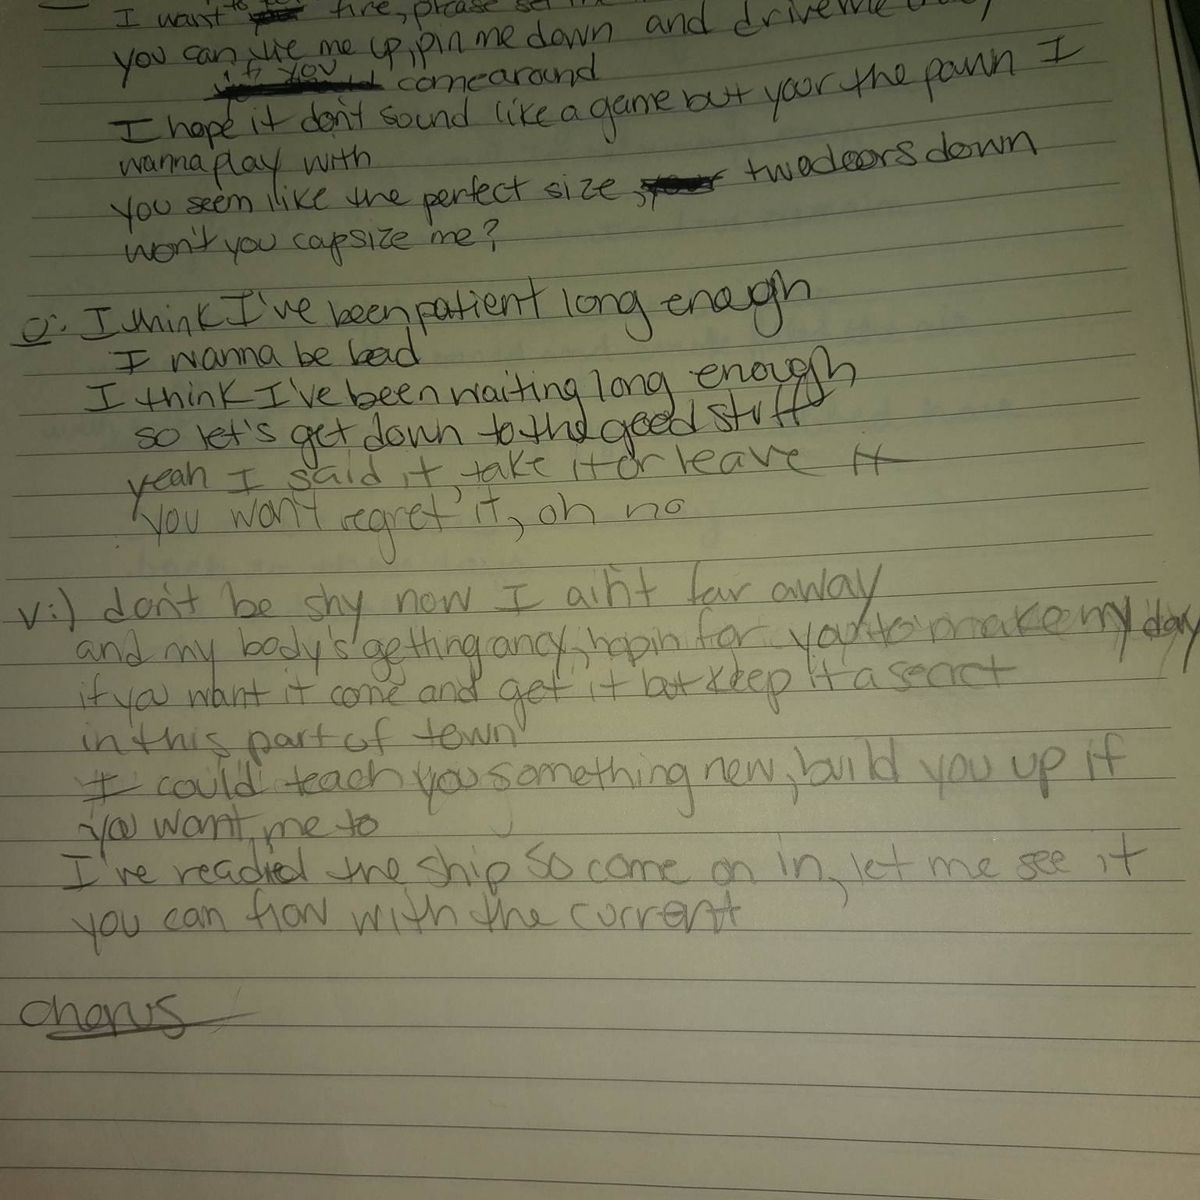 I want to fire, please set
you can tie me up, pin me down and drive me
if you come around
I hope it don't sound like a game but your the pawn I
wanna play with
you seem like the perfect size, two doors down
won't you capsize me?
I think I've been patient long enough
I wanna be bad
I think I've been waiting long enough
so let's get down to the good stuff
yeah I said it, take it or leave it
you won't regret it, oh no
V:) don't be shy now I ain't far away
and my body's getting ancy, hopin for you to make my day
if you want it come and get it but keep it a secret
in this part of town
I could teach you something new, build you up if
you want me to
I've readied the ship so come on in, let me see it
you can flow with the current
chorus